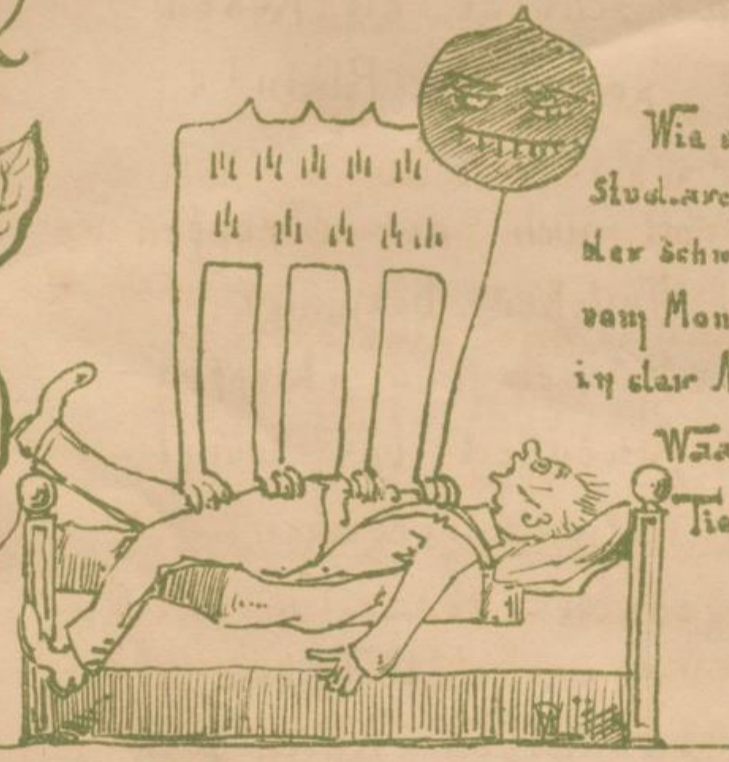 Wie
Stud.arc
der Schw
vom Mon
in der N
Waa
Tie